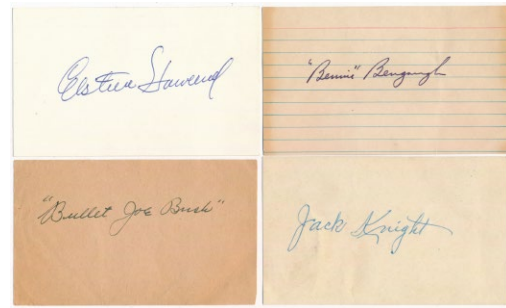 Elston Howard
"Benny" Bengough
"Bullet Joe Bush"
Jack Knight